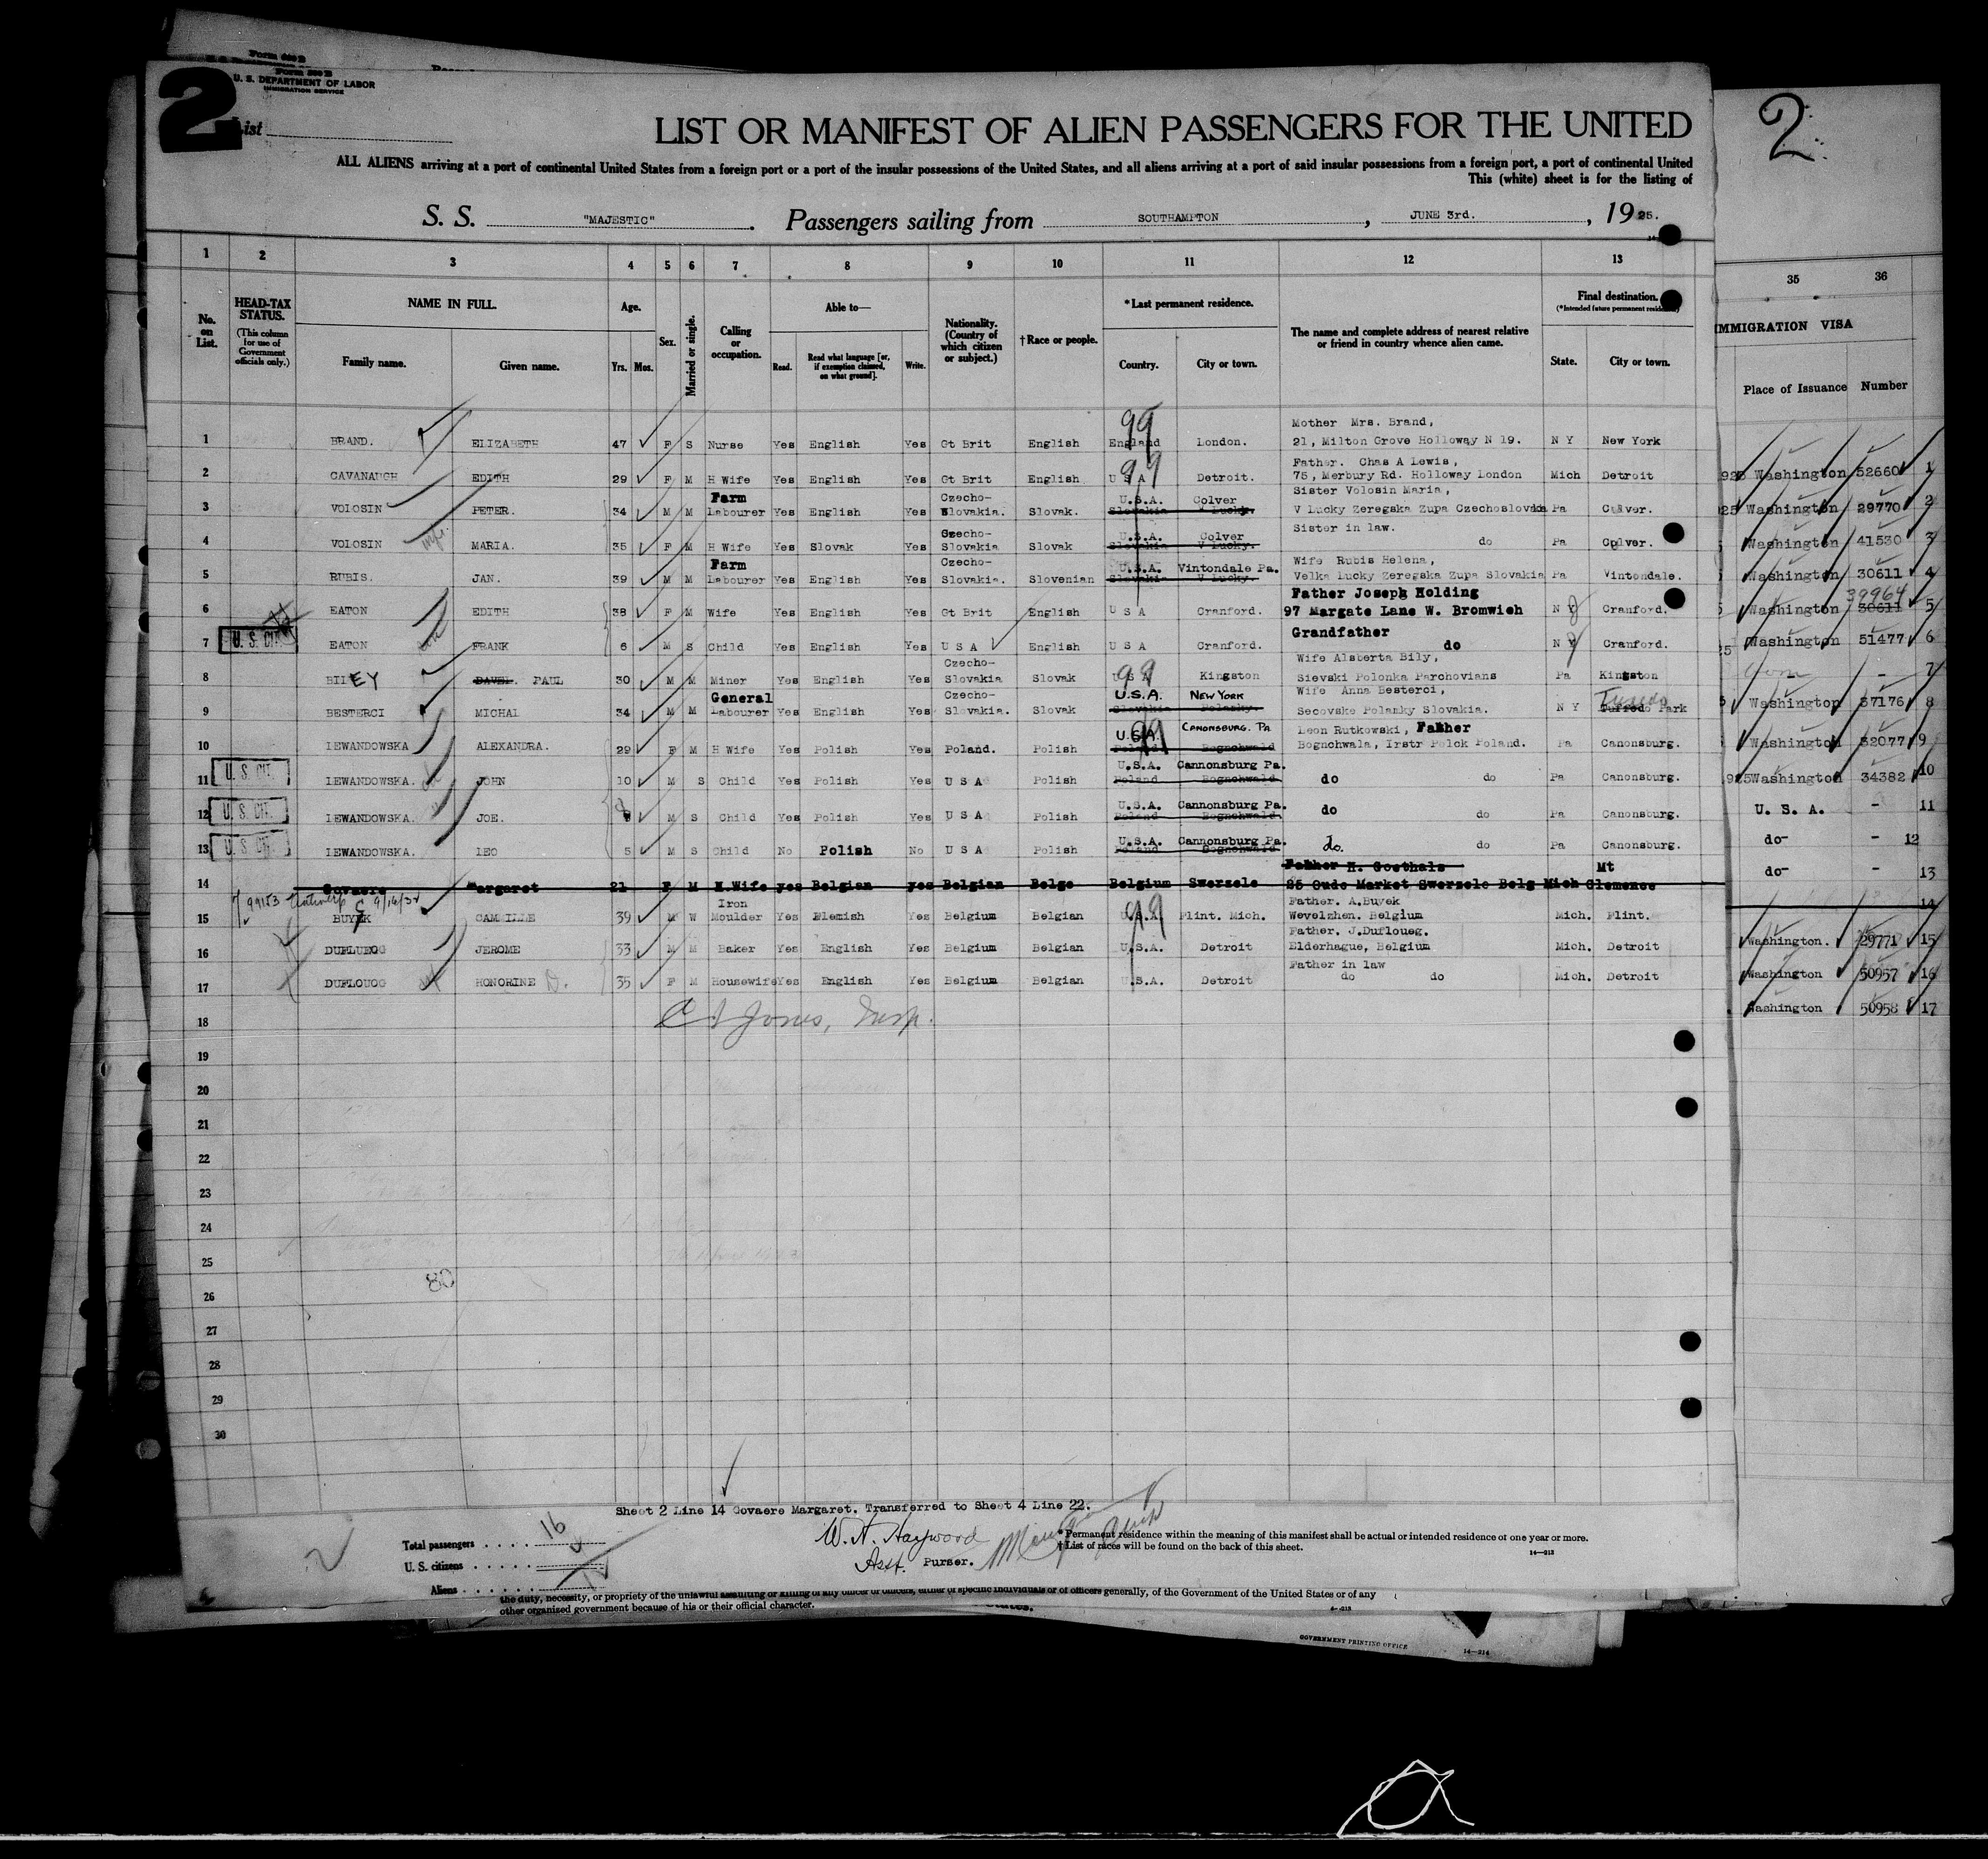 Form 500 B
U. S. DEPARTMENT OF LABOR
IMMIGRATION SERVICE
2
List
LIST OR MANIFEST OF ALIEN PASSENGERS FOR THE UNITED
ALL ALIENS arriving at a port of continental United States from a foreign port or a port of the insular possessions of the United States, and all aliens arriving at a port of said insular possessions from a foreign port, a port of continental United
This (white) sheet is for the listing of
S. S. "MAJESTIC". Passengers sailing from SOUTHAMPTON, JUNE 3rd., 1925.
1 2 3 4 5 6 7 8 9 10 11 12 13
No. on List. HEAD-TAX STATUS. (This column for use of Government officials only.) NAME IN FULL. Family name. Given name. Age. Yrs. Mos. Sex. Married or single. Calling or occupation. Able to— Read. Read what language [or, if exemption claimed, on what ground]. Write. Nationality. (Country of which citizen or subject.) †Race or people. *Last permanent residence. Country. City or town. The name and complete address of nearest relative or friend in country whence alien came. Final destination. (*Intended future permanent residence) State. City or town.
Mother Mrs. Brand,
1 BRAND. ELIZABETH 47 F S Nurse Yes English Yes Gt Brit English England London. 21, Milton Grove Holloway N 19. N Y New York
99
Father. Chas A Lewis,
2 CAVANAUGH EDITH 29 F M H Wife Yes English Yes Gt Brit English U S A Detroit. 75, Merbury Rd. Holloway London Mich Detroit
99
Farm Czecho- U.S.A. Colver Sister Volosin Maria,
3 VOLOSIN PETER. 34 M M Labourer Yes English Yes Slovakia. Slovak. Slovakia V Lucky. V Lucky Zeregska Zupa Czechoslovakia Pa Colver.
Czecho- U.S.A. Colver Sister in law.
4 VOLOSIN MARIA. 35 F M H Wife Yes Slovak Yes Slovakia Slovak Slovakia V Lucky. do Pa Colver.
Farm Czecho- U.S.A. Vintondale Pa. Wife Rubis Helena,
5 RUBIS. JAN. 39 M M Labourer Yes English Yes Slovakia. Slovenian Slovakia V Lucky. Velka Lucky Zeregska Zupa Slovakia Pa Vintondale.
Father Joseph Holding
6 EATON EDITH 38 F M Wife Yes English Yes Gt Brit English U S A Cranford. 97 Margate Lane W. Bromwich N Y Cranford.
Grandfather
7 U. S. CIT. EATON FRANK 6 M S Child Yes English Yes U S A English U S A Cranford. do N Y Cranford.
Czecho- Wife Alsberta Bily,
8 BILEY PAUL 30 M M Miner Yes English Yes Slovakia Slovak U S A Kingston Sievski Polonka Parchovians Pa Kingston
99
General Czecho- U.S.A. NEW YORK Wife Anna Besterci,
9 BESTERCI MICHAL 34 M M Labourer Yes English Yes Slovakia. Slovak Slovakia Polanky. Secovske Polanky Slovakia. N Y Tuxedo Park
U.S.A. CANONSBURG. PA Leon Rutkowski, Father
10 LEWANDOWSKA ALEXANDRA. 29 F M H Wife Yes Polish Yes Poland. Polish Poland Bognchwald Bognchwala, Irstr Pelck Poland. Pa Canonsburg.
U.S.A. Cannonsburg Pa.
11 U. S. CIT. LEWANDOWSKA. JOHN 10 M S Child Yes Polish Yes U S A Polish Poland Bognchwald do do Pa Canonsburg.
U.S.A. Cannonsburg Pa.
12 U. S. CIT. LEWANDOWSKA. JOE. 8 M S Child Yes Polish Yes U S A Polish Poland Bognchwald do do Pa Canonsburg.
U.S.A. Cannonsburg Pa.
13 U. S. CIT. LEWANDOWSKA. LEO 5 M S Child No Polish No U S A Polish Poland Bognchwald do. do Pa Canonsburg.
Father H. Goethals Mt
14 Govaere Margaret 21 F M H.Wife yes Belgian yes Belgian Belge Belgium Swerzele 25 Oude Market Swerzele Belg Mich Clemence
99153 Antwerp 9/16/32
Iron Father. A.Buyck
15 BUYCK CAMILLE 39 M W Moulder Yes Flemish Yes Belgium Belgian U.S.A. Flint. Mich. Wevelzhen. Belgium Mich. Flint.
99
Father. J.Dufloueg.
16 DUFLUEOG JEROME 33 M M Baker Yes English Yes Belgium Belgian U.S.A. Detroit Elderhague, Belgium Mich. Detroit
Father in law
17 DUFLOUOG HONORINE D. 35 F M Housewife Yes English Yes Belgium Belgian U.S.A. Detroit do do Mich. Detroit
18
Jones, Insp.
19
20
21
22
23
24
25
80
26
27
28
29
30
Sheet 2 Line 14 Govaere Margaret. Transferred to Sheet 4 Line 22.
Total passengers 16
U. S. citizens 4
Aliens
W. H. Haywood
Asst. Purser.
*Permanent residence within the meaning of this manifest shall be actual or intended residence of one year or more.
†List of races will be found on the back of this sheet.
14—213
the duty, necessity, or propriety of the unlawful assaulting or killing of any officer or officers, either of specific individuals or of officers generally, of the Government of the United States or of any
other organized government because of his or their official character.
GOVERNMENT PRINTING OFFICE
14—214
2
35 36
IMMIGRATION VISA
Place of Issuance Number
Washington 52660 1
Washington 29770 2
Washington 41530 3
Washington 30611 4
39964
Washington 30611 5
Washington 51477 6
- - 7
Washington 37176 8
Washington 32077 9
Washington 34382 10
U. S. A. - 11
do- - 12
do- - 13
14
Washington. 29771 15
Washington 50957 16
Washington 50958 17